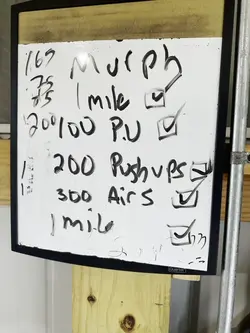 Murph
1 mile
100 PU
200 Pushups
300 Airs
1 mile
165
75
75
200